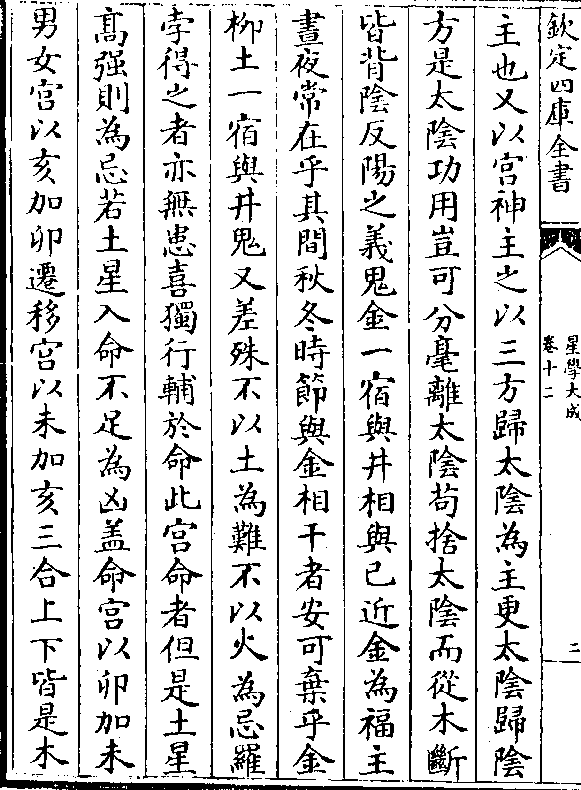 欽定四庫全書
星學大成
卷十二
二
主也又以宮神主之以三方歸太陰為主更太陰歸陰
方是太陰功用豈可分毫離太陰苟捨太陰而從木斷
皆背陰反陽之義鬼金一宿與井相與已近金為福主
晝夜常在乎其間秋冬時節與金相干者安可棄乎金
柳土一宿與井鬼又差殊不以土為難不以火為忌羅
孛得之者亦無恚喜獨行輔於命此宮命者但是土星
髙强則為忌若土星入命不足為凶盖命宮以卯加未
男女宮以亥加卯遷移宮以未加亥三合上下皆是木